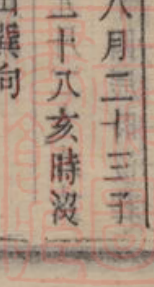 八月二十三子
二十八亥時沒
山巽向